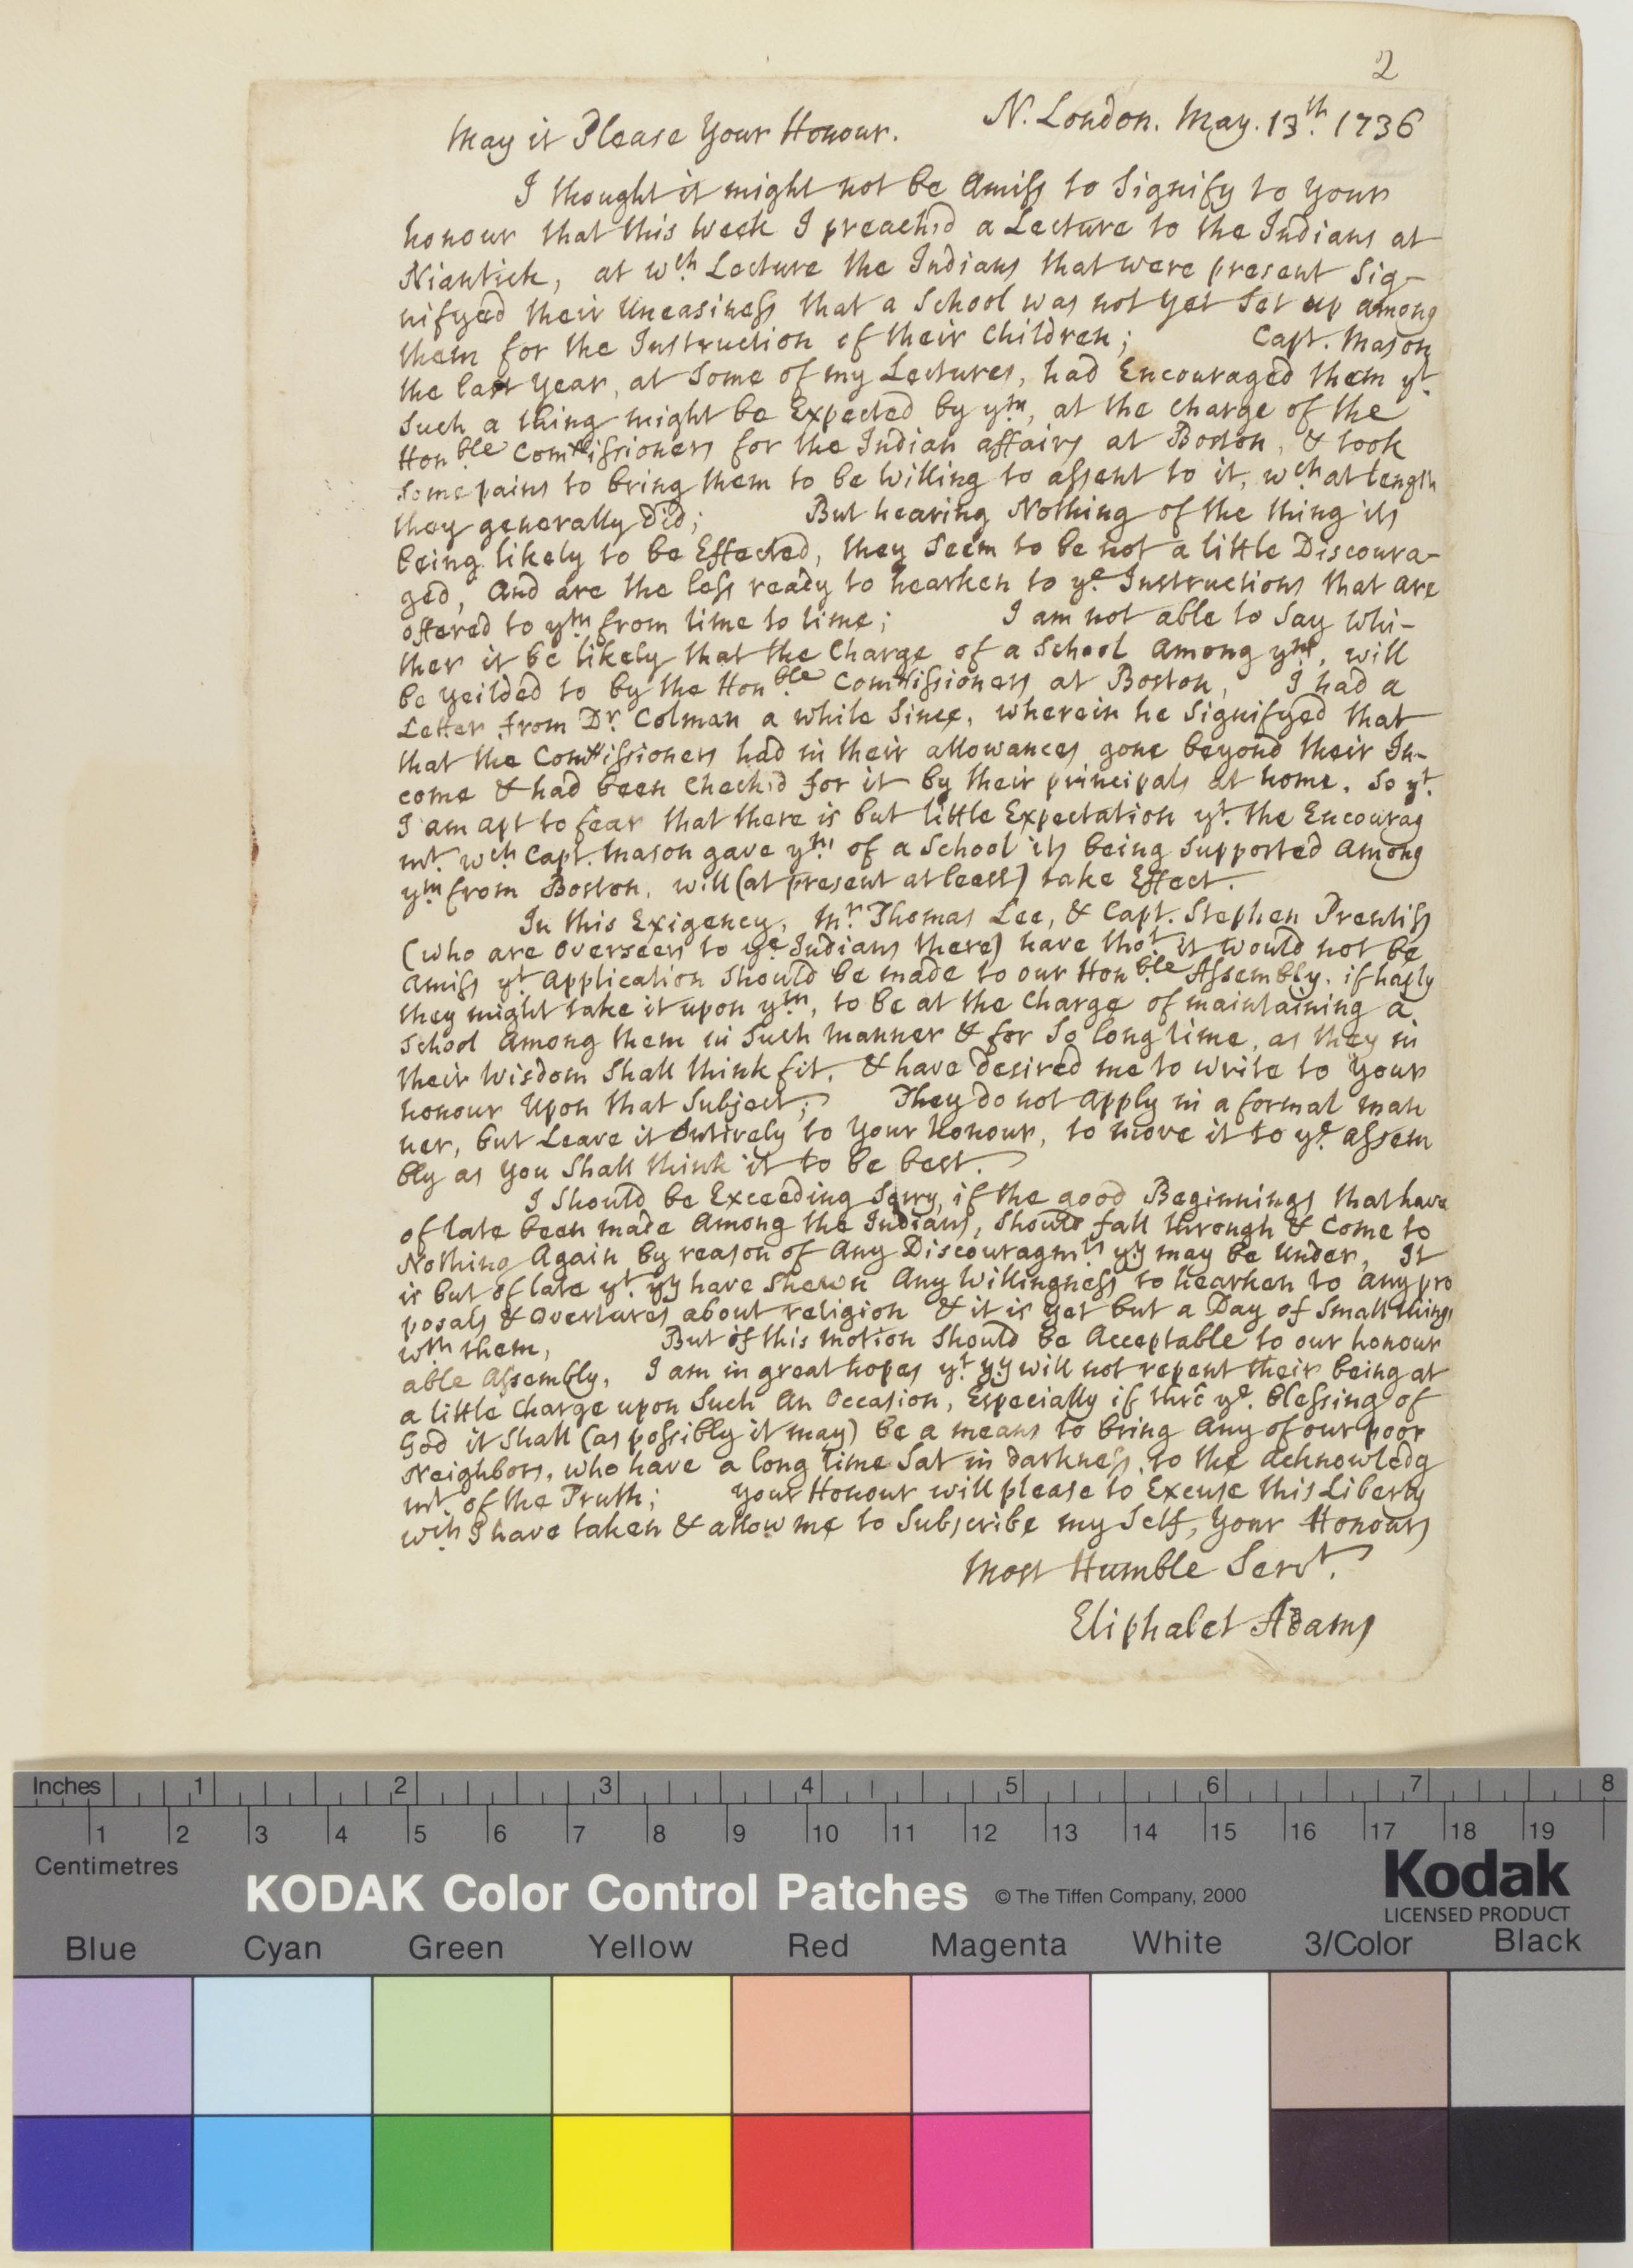 2
N. London. May. 13th. 1736
May it Please Your Honour.
I thought it might not be Amiss to Signify to Your
honour that this Week I preach'd a Lecture to the Indians at
Niantick, at wch Lecture the Indians that were present Sig-
nifyed their Uneasiness that a School was not Yet Set up among
them for the Instruction of their Children; Capt. Mason
the last Year, at Some of my Lectures, had Encouraged them yt
Such a thing might be Expected by ym, at the Charge of the
Honble Commissioners for the Indian affairs at Boston, & took
Some pains to bring them to be Willing to assent to it, wch at length
they generally Did; But hearing Nothing of the thing its
being likely to be Effected, they Seem to be not a little Discoura-
ged, And are the less ready to hearken to ye Instructions that are
offered to ym from time to time; I am not able to Say Whi-
ther it be likely that the Charge of a School Among ym, will
be yeilded to by the Honble Commissioners at Boston, I had a
Letter from Dr. Colman a while Since, wherein he Signifyed that
that the Commissioners had in their allowances gone beyond their In-
come & had been Check'd for it by their principals at home. So yt.
I am apt to fear that there is but little Expectation yt. the Encourag
mt. wch Capt. Mason gave ym of a School its being Supported Among
ym from Boston, will (at present at least) take Effect.
In this Exigency, Mr Thomas Lee, & Capt. Stephen Prentiss
(who are Overseers to ye Indians there) have thot it would not be
Amiss yt Application Should be made to our Honble Assembly, if haply
they might take it upon ym, to be at the Charge of maintaining a
School Among them in Such Manner & for So long time, as they in
their Wisdom Shall think fit, & have desired me to Write to Your
honour Upon that Subject; They do not Apply in a formal man
ner, but Leave it Entirely to Your honour, to move it to ye Assem
bly as You Shall think it to be best.
I Should be Exceeding Sorry, if the good Beginnings that have
of late been made Among the Indians, Should fall through & Come to
Nothing Again by reason of Any Discouragmts yy may be Under, It
is but of late yt. yy have Shewn Any Willingness to hearken to any pro
posals & Overtures about religion & it is yet but a Day of Small things
wth them, But if this Motion Should be Acceptable to our honour
able Assembly, I am in great hopes yt yy will not repent their being at
a little Charge upon Such An Occasion, Especially if thro ye. blessing of
God it Shall (as possibly it may) be a means to bring Any of our poor
Neighbors, who have a long time Sat in darkness, to the acknowledg
mt. of the Truth; Your Honour will please to Excuse this Liberty
wch I have taken & allow me to Subscribe my Self, Your Honours
Most Humble Servt.
Eliphalet Adams
Inches 1 2 3 4 5 6 7 8
1 2 3 4 5 6 7 8 9 10 11 12 13 14 15 16 17 18 19
Centimetres
KODAK Color Control Patches © The Tiffen Company, 2000
Kodak
LICENSED PRODUCT
Blue Cyan Green Yellow Red Magenta White 3/Color Black